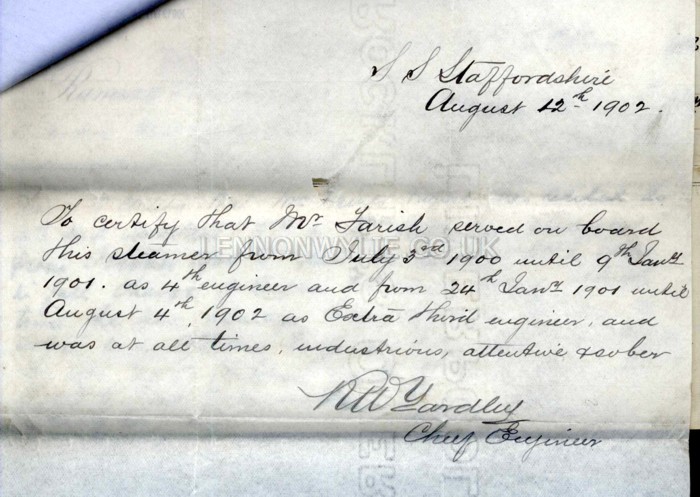 S S Staffordshire
August 12th 1902.
To certify that Mr Farish served on board
this steamer from July 3rd 1900 until 9th Jany
1901. as 4th engineer and from 24th Jany 1901 until
August 4th, 1902 as Extra third engineer, and
was at all times, industrious, attentive & sober
LENNONWYLIE.CO.UK
R W Yardley
Chief Engineer